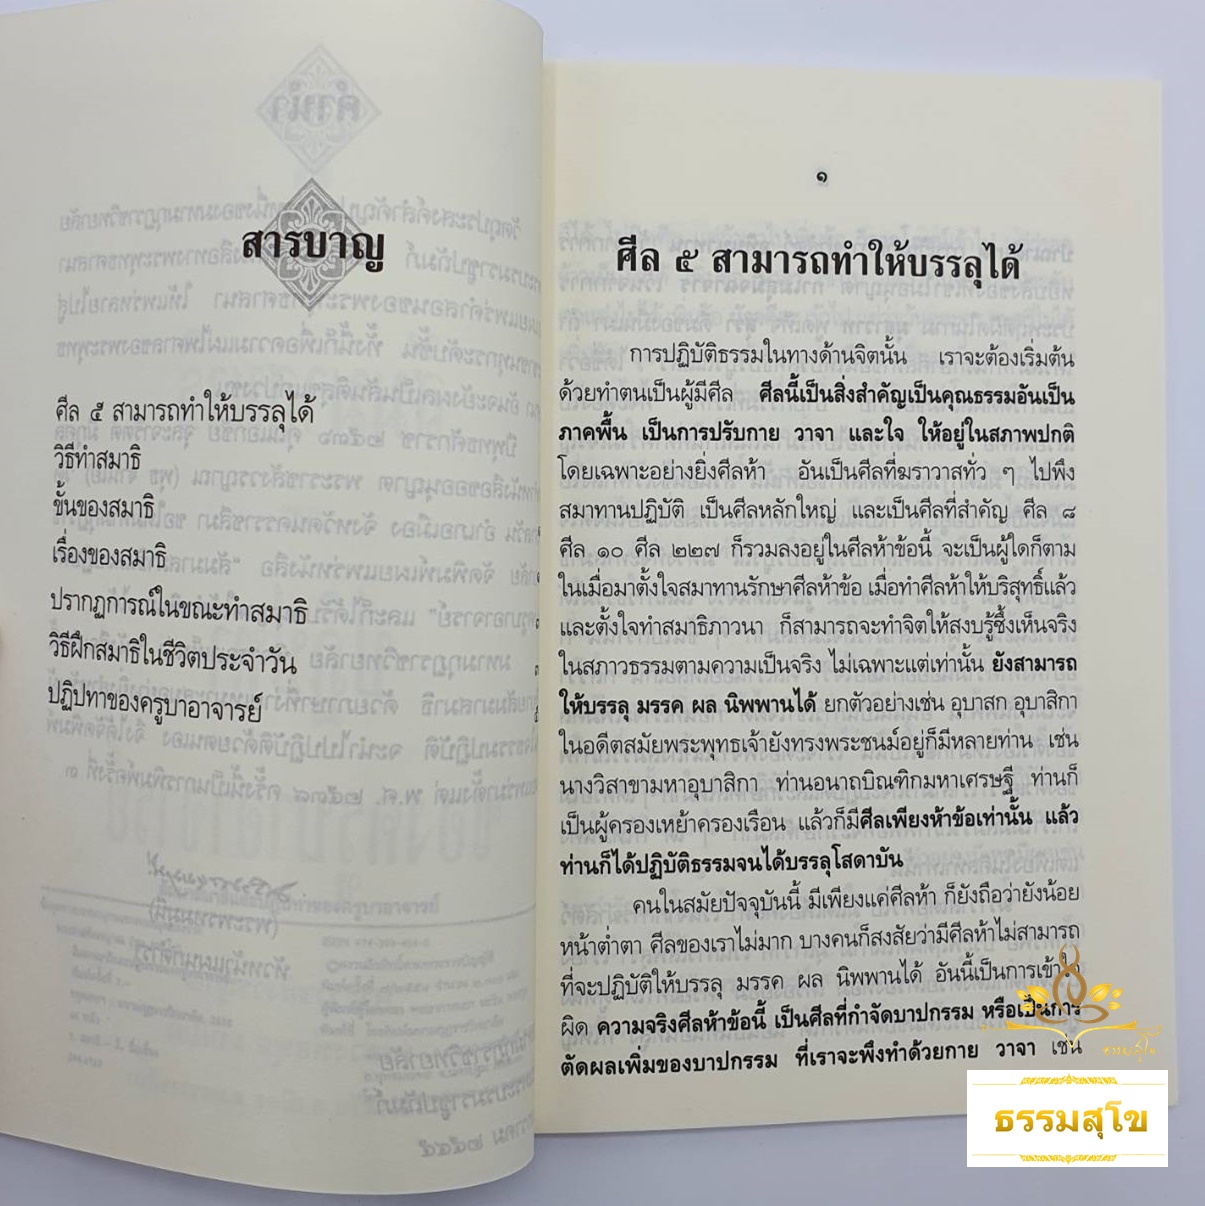 สารบาญ
ศีล ๕ สามารถทำให้บรรลุได้
วิธีทำสมาธิ
ขั้นของสมาธิ
เรื่องของสมาธิ
ปรากฏการณ์ในขณะทำสมาธิ
วิธีฝึกสมาธิในชีวิตประจำวัน
ปฏิปทาของครูบาอาจารย์
๑
ศีล ๕ สามารถทำให้บรรลุได้
การปฏิบัติธรรมในทางด้านจิตนั้น เราจะต้องเริ่มต้น
ด้วยทำตนเป็นผู้มีศีล ศีลนี้เป็นสิ่งสำคัญเป็นคุณธรรมอันเป็น
ภาคพื้น เป็นการปรับกาย วาจา และใจ ให้อยู่ในสภาพปกติ
โดยเฉพาะอย่างยิ่งศีลห้า อันเป็นศีลที่ฆราวาสทั่ว ๆ ไปพึง
สมาทานปฏิบัติ เป็นศีลหลักใหญ่ และเป็นศีลที่สำคัญ ศีล ๘
ศีล ๑๐ ศีล ๒๒๗ ก็รวมลงอยู่ในศีลห้าข้อนี้ จะเป็นผู้ใดก็ตาม
ในเมื่อมาตั้งใจสมาทานรักษาศีลห้าข้อ เมื่อทำศีลห้าให้บริสุทธิ์แล้ว
และตั้งใจทำสมาธิภาวนา ก็สามารถจะทำจิตให้สงบรู้ซึ้งเห็นจริง
ในสภาวธรรมตามความเป็นจริง ไม่เฉพาะแต่เท่านั้น ยังสามารถ
ให้บรรลุ มรรค ผล นิพพานได้ ยกตัวอย่างเช่น อุบาสก อุบาสิกา
ในอดีตสมัยพระพุทธเจ้ายังทรงพระชนม์อยู่ก็มีหลายท่าน เช่น
นางวิสาขามหาอุบาสิกา ท่านอนาถบิณฑิกมหาเศรษฐี ท่านก็
เป็นผู้ครองเหย้าครองเรือน แล้วก็มีศีลเพียงห้าข้อเท่านั้น แล้ว
ท่านก็ได้ปฏิบัติธรรมจนได้บรรลุโสดาบัน
คนในสมัยปัจจุบันนี้ มีเพียงแค่ศีลห้า ก็ยังถือว่ายังน้อย
หน้าต่ำตา ศีลของเราไม่มาก บางคนก็สงสัยว่ามีศีลห้าไม่สามารถ
ที่จะปฏิบัติให้บรรลุ มรรค ผล นิพพานได้ อันนี้เป็นการเข้าใจ
ผิด ความจริงศีลห้าข้อนี้ เป็นศีลที่กำจัดบาปกรรม หรือเป็นการ
ตัดผลเพิ่มของบาปกรรม ที่เราจะพึงทำด้วยกาย วาจา เช่น
ธรรมสุโข
ธรรมสุโข